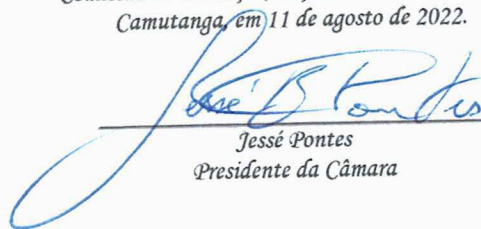 Camutanga, em 11 de agosto de 2022.
Jessé B Pontes
Jessé Pontes
Presidente da Câmara